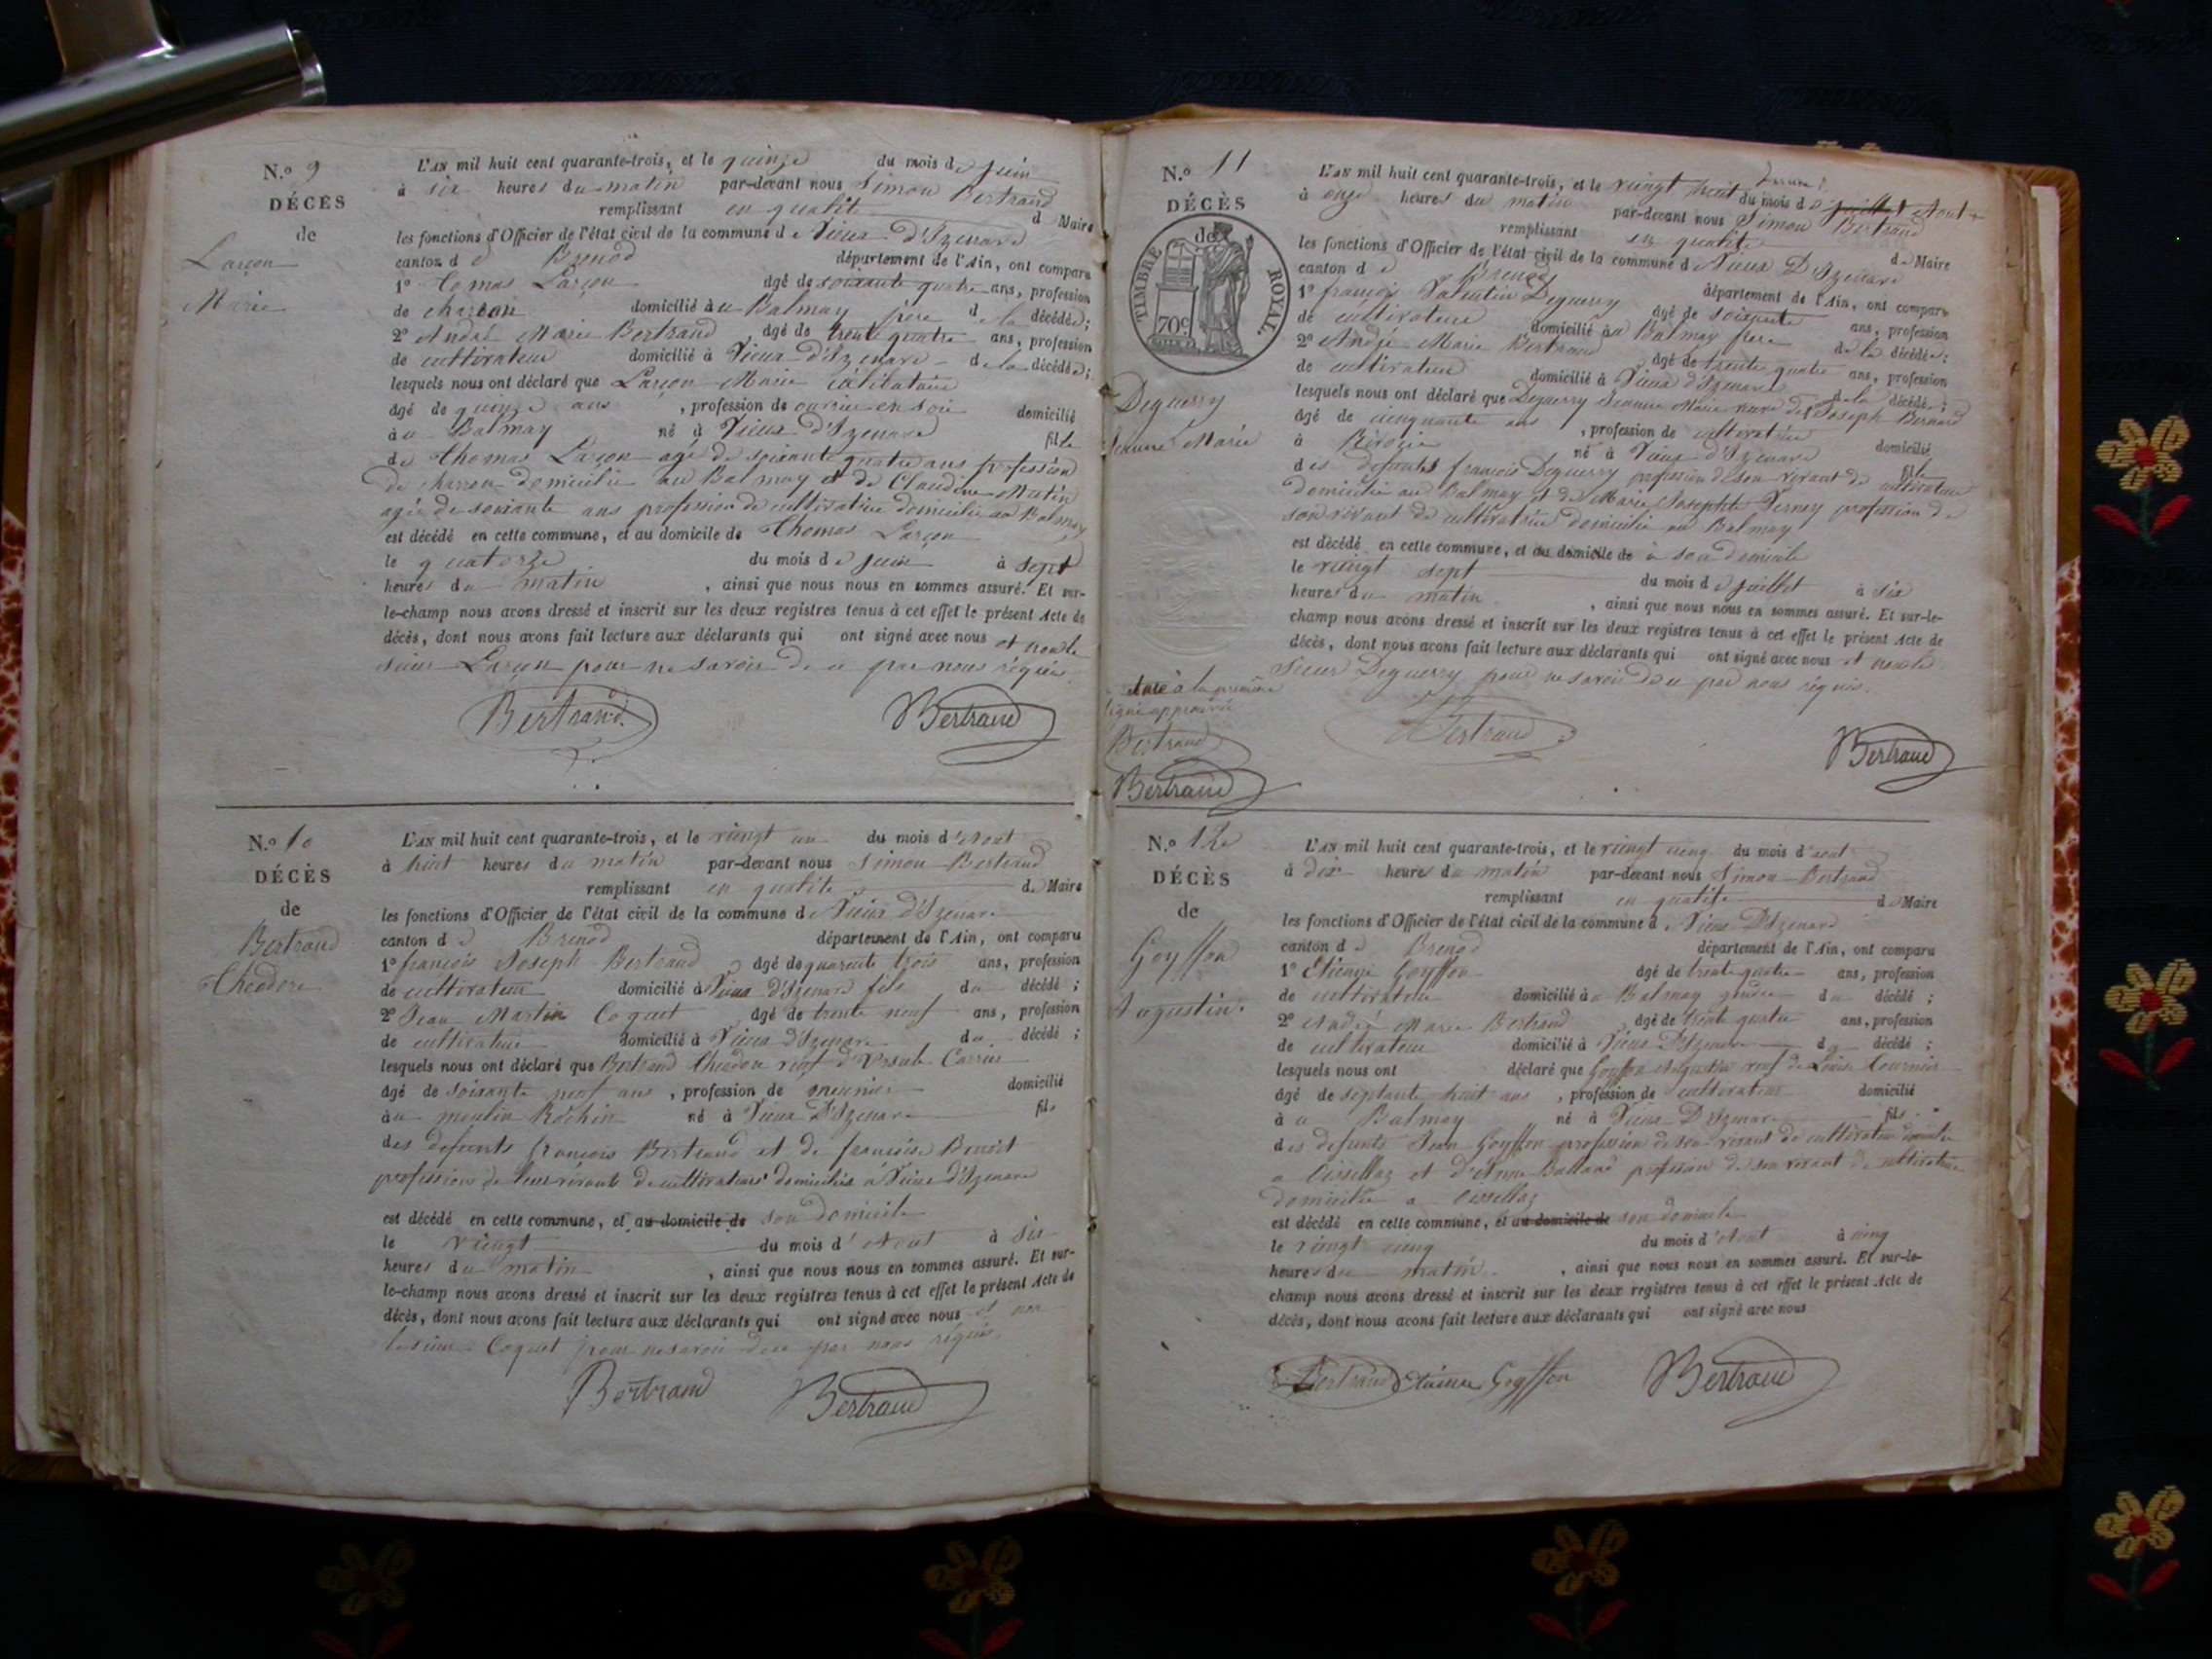 N.o 9
DÉCÈS
de
Larçon
Marie
L'AN mil huit cent quarante-trois, et le quinze du mois de juin
à six heures du matin par-devant nous Simon Bertrand
remplissant en qualité de Maire
les fonctions d'Officier de l'état civil de la commune de Vieux d'Izenave
canton de Brenod département de l'Ain, ont comparu
1o Tomas Larçon âgé de soixante quatre ans, profession
de charon domicilié au Balmay père de la décédée;
2o André Marie Bertrand âgé de trente quatre ans, profession
de cultivateur domicilié à Vieux d'Izenave de la décédée;
lesquels nous ont déclaré que Larçon Marie célibataire
âgé de quinze ans, profession de ouvrière en soie domicilié
au Balmay né à Vieux d'Izenave fille
de Thomas Larçon agé de soixante quatre ans profession
de charron domicilié au Balmay et de Claudine Matin
agée de soixante ans profession de cultivatrice domicilié au Balmay
est décédé en cette commune, et au domicile de Thomas Larçon
le quatorze du mois de juin à sept
heures du matin, ainsi que nous nous en sommes assuré. Et sur-
le-champ nous avons dressé et inscrit sur les deux registres tenus à cet effet le présent Acte de
décès, dont nous avons fait lecture aux déclarants qui ont signé avec nous et non le
sieur Larçon pour ne savoir de ce par nous réquis
Bertrand Bertrand
N.o 10
DÉCÈS
de
Bertrand
Théodore
L'AN mil huit cent quarante-trois, et le vingt un du mois d'Aout
à huit heures du matin par-devant nous Simon Bertrand
remplissant en qualité de Maire
les fonctions d'Officier de l'état civil de la commune de Vieux d'Izenave
canton de Brenod département de l'Ain, ont comparu
1o françois Joseph Bertrand âgé de quarente trois ans, profession
de cultivateur domicilié à Vieux d'Izenave fils du décédé;
2o Jean Martin Coquet âgé de trente neuf ans, profession
de cultivateur domicilié à Vieux d'Izenave du décédé;
lesquels nous ont déclaré que Bertrand Théodore veuf d'Ursule Carrier
âgé de soixante neuf ans, profession de meunier domicilié
au moulin Rochin né à Vieux D'Izenave fils
des défunts françois Bertrand et de françoise Benoit
profession de leur vivants de cultivateurs domiciliés à Vieux d'Izenave
est décédé en cette commune, et au domicile de son domicile
le vingt du mois d'Aout à six
heures du matin, ainsi que nous nous en sommes assuré. Et sur-
le-champ nous avons dressé et inscrit sur les deux registres tenus à cet effet le présent Acte de
décès, dont nous avons fait lecture aux déclarants qui ont signé avec nous et non
le sieur Coquet pour ne savoir de ce par nous réquis
Bertrand Bertrand
N.o 11
DÉCÈS
de
TIMBRE ROYAL.
70c
Deguerry
Jeanne Marie
L'AN mil huit cent quarante-trois, et le vingt huit du mois de juillet Aout
à onze heures du matin par-devant nous Simon Bertrand
remplissant en qualité de Maire
les fonctions d'Officier de l'état civil de la commune de Vieux D'Izenave
canton de Brenod département de l'Ain, ont comparu
1o françois Valentin Deguerry âgé de soixante ans, profession
de cultivateur domicilié au Balmay frère de la décédée;
2o André Marie Bertrand âgé de trente quatre ans, profession
de cultivateur domicilié à Vieux d'Izenave de la décédée;
lesquels nous ont déclaré que Deguerry Jeanne Marie veuve de Joseph Bernard
âgé de cinquante ans, profession de cultivatrice domicilié
à né à Vieux d'Izenave fille
des défunts françois Deguerry profession de son vivant de cultivateur
domicilié au Balmay et de Marie Josephte Verney profession de
son vivant de cultivatrice domicilié au Balmay
est décédé en cette commune, et au domicile de à son domicile
le vingt sept du mois de juillet à six
heures du matin, ainsi que nous nous en sommes assuré. Et sur-le-
champ nous avons dressé et inscrit sur les deux registres tenus à cet effet le présent Acte de
décès, dont nous avons fait lecture aux déclarants qui ont signé avec nous et non le
sieur Deguerry pour ne savoir de ce par nous réquis.
à la première
ligne approuvée
Bertrand
Bertrand
Bertrand Bertrand
N.o 12
DÉCÈS
de
Goyffon
Augustin.
L'AN mil huit cent quarante-trois, et le vingt cinq du mois d'aout
à dix heures du matin par-devant nous Simon Bertrand
remplissant en qualité de Maire
les fonctions d'Officier de l'état civil de la commune de Vieux D'Izenave
canton de Brenod département de l'Ain, ont comparu
1o Étienne Goyffon âgé de trente quatre ans, profession
de cultivateur domicilié au Balmay gendre du décédé;
2o André Marie Bertrand âgé de trente quatre ans, profession
de cultivateur domicilié à Vieux D'Izenave du décédé;
lesquels nous ont déclaré que Goyffon Augustin veuf de Louise Tournier
âgé de septante huit ans, profession de cultivateur domicilié
au Balmay né à Vieux D'Izenave fils
des défunts Jean Goyffon profession de son vivant de cultivateur domicilié
a Cissellaz et d'Anne Balland profession de son vivant de cultivatrice
domicilié a Cissellaz
est décédé en cette commune, et au domicile de son domicile
le vingt cinq du mois d'Aout à cinq
heures du matin, ainsi que nous nous en sommes assuré. Et sur-le-
champ nous avons dressé et inscrit sur les deux registres tenus à cet effet le présent Acte de
décès, dont nous avons fait lecture aux déclarants qui ont signé avec nous
Bertrand Etienne Goyffon Bertrand